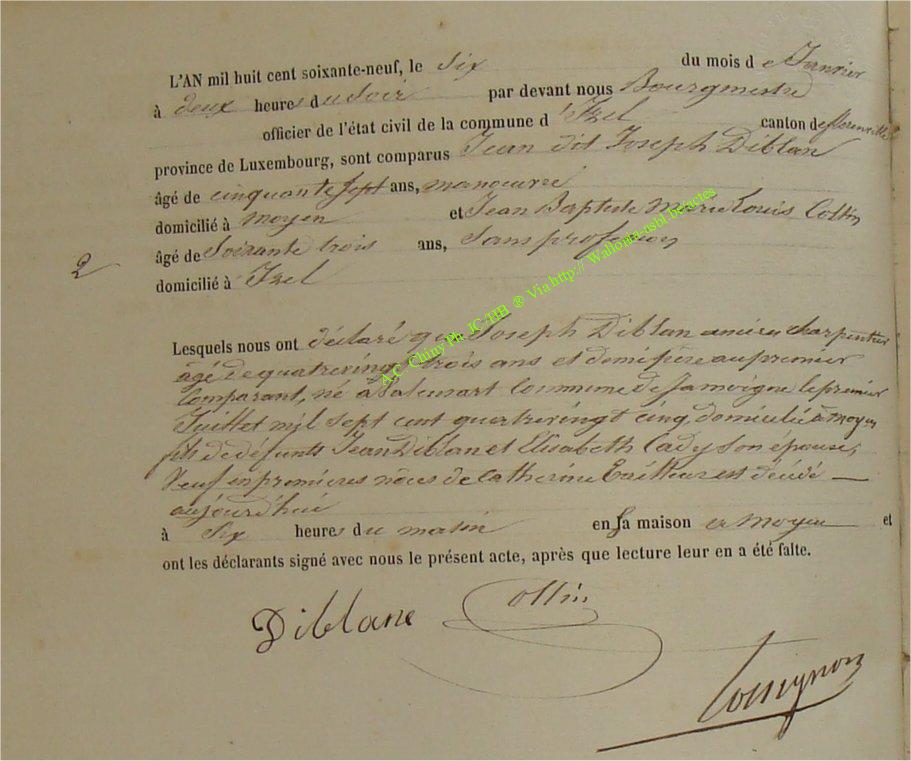 L'AN mil huit cent soixante-neuf, le Six du mois de Janvier
à deux heures du Soir par devant nous Bourgmestre
officier de l'état civil de la commune d'Izel canton de florenville
province de Luxembourg, sont comparus Jean dit Joseph Diblan
âgé de cinquante sept ans, manoeuvre
domicilié à moyen et Jean Baptiste Marie Louis Collin
âgé de Soixante trois ans, Sans profession
2
domicilié à Izel
Lesquels nous ont déclaré que Joseph Diblan ancien charpentier
âgé de quatrevingt trois ans et demi père au premier
Comparant, né à Commune de Jamoigne le premier
Juillet mil Sept cent quatrevingt cinq domicilié à moyen
fils de défunts Jean Diblan et Elisabeth Lady Son épouse,
Veuf en premières nôces de Catherine est décédé —
aujourd'hui
à Six heures du matin en Sa maison à moyen et
ont les déclarants signé avec nous le présent acte, après que lecture leur en a été faite.
A.C Chiny Ph. JC/HB ® Via http// Wallonia-asbl.be/actes
Diblane Collin